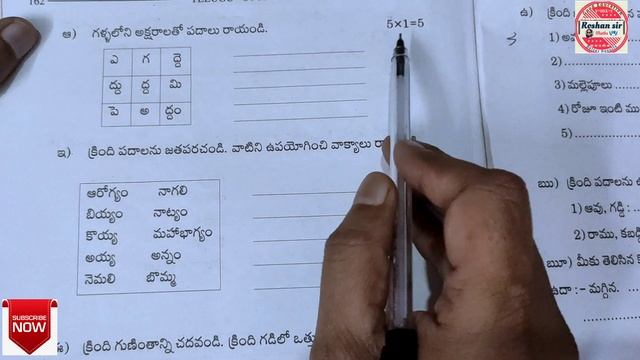 162
ఆ) గళ్ళలోని అక్షరాలతో పదాలు రాయండి. 5×1=5
ఎ గ ద్దె
ద్దు ద్ద మి
పె అ ద్దం
ఇ) క్రింది పదాలను జతపరచండి. వాటిని ఉపయోగించి వాక్యాలు
ఆరోగ్యం నాగలి
బియ్యం నాట్యం
కొయ్య మహాభాగ్యం
అయ్య అన్నం
నెమలి బొమ్మ
ఈ) క్రింది గుణింతాన్ని చదవండి. క్రింది గడిలో
ఉ)
1)
2)
3) మల్లెపూలు
4) రోజూ ఇంటి
5)
ఋ) క్రింది పదాలను
1) ఆవు, గడ్డి :
2) రాము,
ౠ) మీకు తెలిసిన
ఉదా :- మగ్గిన.
Reshan sir
Maths
SUBSCRIBE
NOW